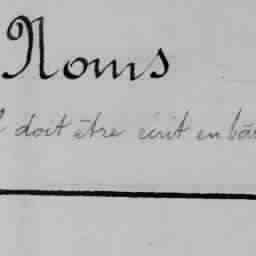 Noms
doit être écrit en